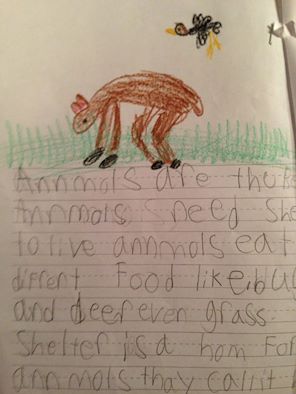 Annmols are thate
Annmols need she
to live annmols eat
diffrent food like bug
and deer even grass.
Shelter is a hom For
annmols thay call it